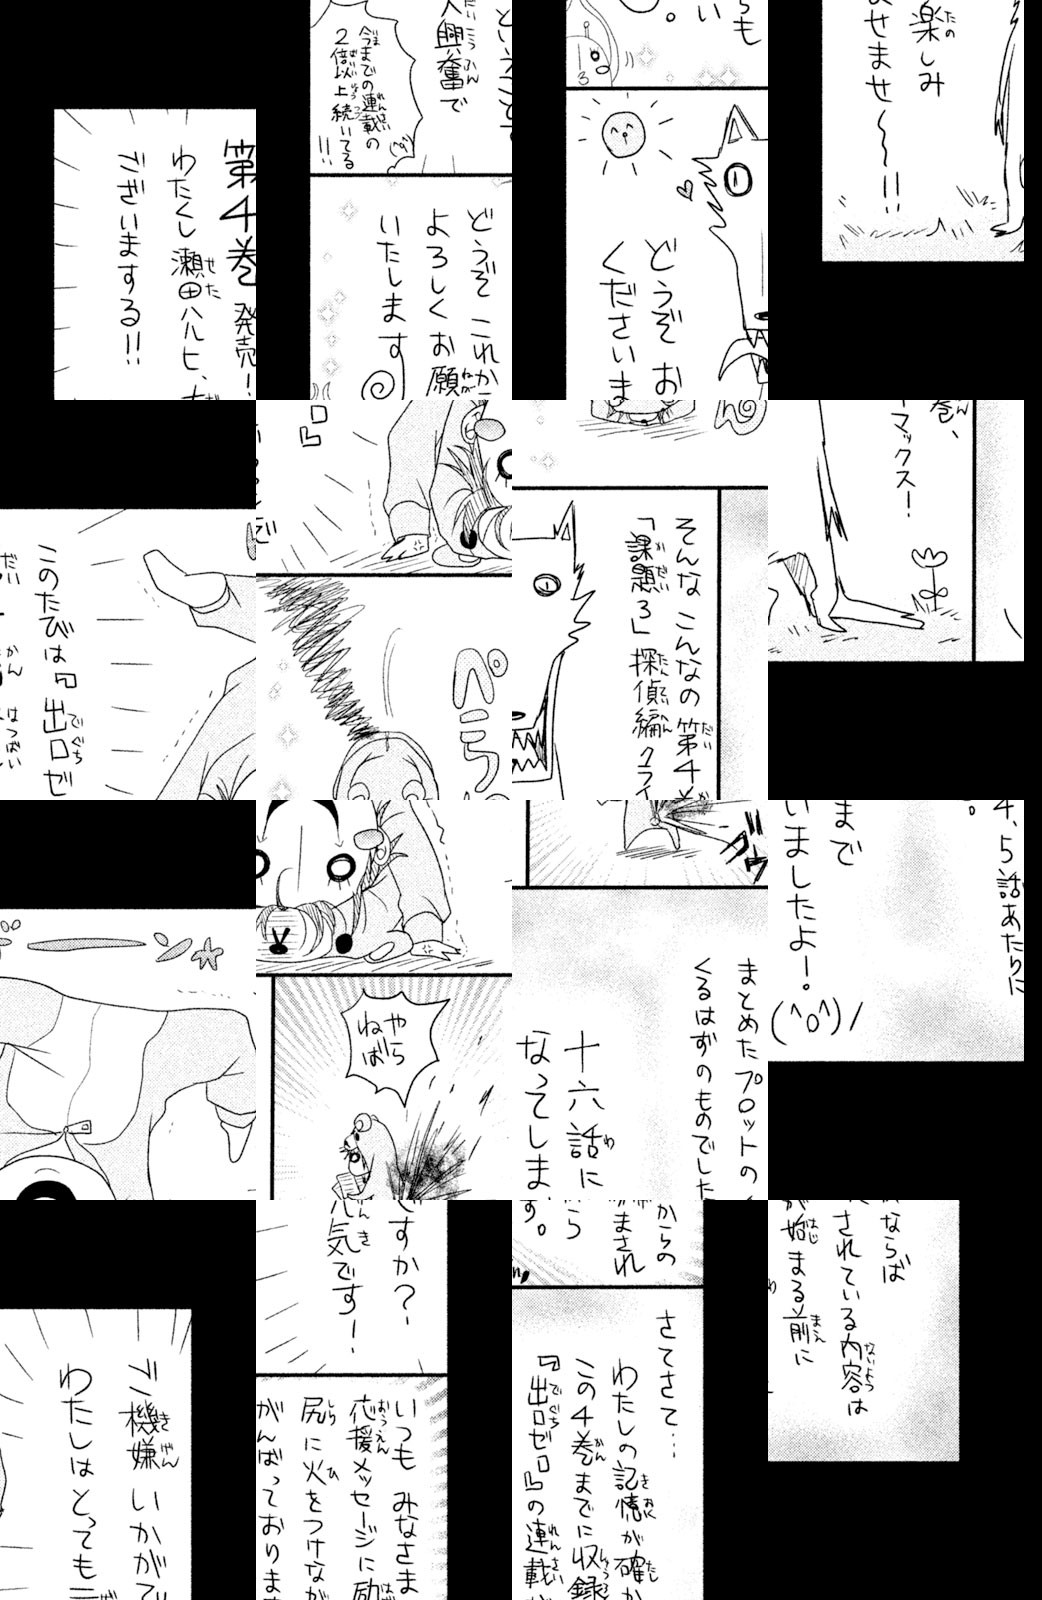 第4巻 発売!
わたくし 瀬田ハルヒ、
でございまする!!
ということで
大興奮で
今までの連載の
2倍以上続いてる
!!
どうぞ これか
よろしくお願
いたします
らも
い。
どうぞ お
くださいま
楽しみ
ませませ〜!!
このたびは『出口ゼ
』
ペラ
そんな こんなの 第4巻
「課題3」探偵編 クライ
巻、
マックス!
やら
ねば
まとめたプロットの
くるはずのものでした
十六話に
なってします。
4、5話あたりに
。
まで
いましたよ!。
(^o^)/
ご機嫌 いかがで
わたしはとっても元
ですか?
気です!
いつも みなさま
応援メッセージに励
尻に火をつけなが
がんばっておりま
からの
まされ
さてさて…
わたしの記憶が確か
この4巻までに収録
『出口ゼロ』の連載が
ならば
されている内容は
が始まる前に